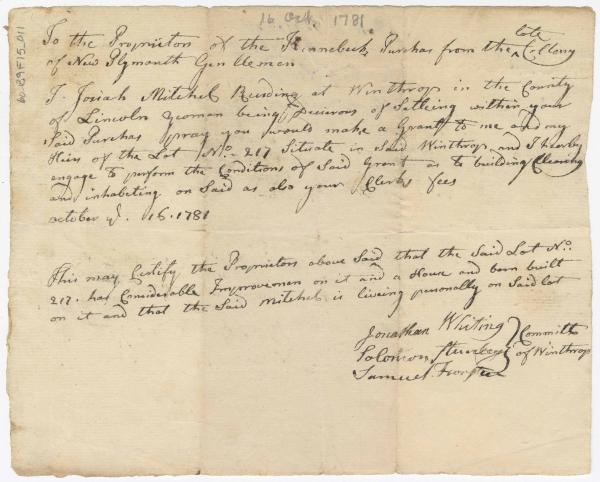 16 Oct. 1781
60.89F15.011
late
To the Propriators of the Kennebeck Purchas from the ^ Collony
of New Plymouth Gentlemen
I Josiah Mitchel Residing at Winthrop in the County
of Lincoln yeoman being Desirous of Setleing within your
Said Purchas pray you would make a Grant to me and my
Heirs of the Lot No. 217 Situate in Said Winthrop and I hearby
engage to perform the Conditions of Said Grant as to building Clearing
and inhabeting on Said as also your Clerks fees
october ye. 16. 1781
This may Certify the Propriators above Said that the Said Lot No.
217. has Considerable Improvemen on it and a House and barn built
on it and that the Said Mitchel is liveing personally on Said lot
Jonathan Whiting
Solomon
Samuel
Committe
of Winthrop